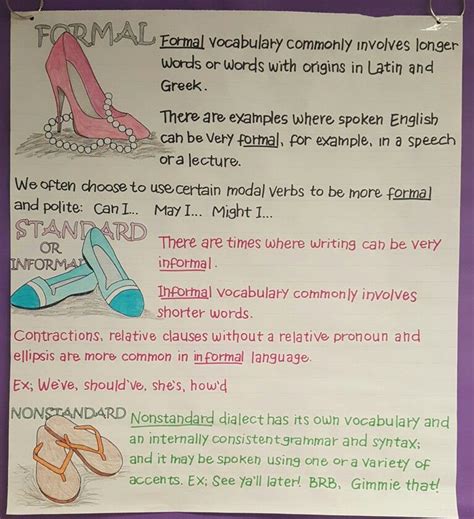 FORMAL
Formal vocabulary commonly involves longer
words or words with origins in Latin and
Greek.
There are examples where spoken English
can be very formal, for example, in a speech
or a lecture.
We often choose to use certain modal verbs to be more formal
and polite: Can I... May I... Might I...
STANDARD
OR
INFORMAL
There are times where writing can be very
informal.
Informal vocabulary commonly involves
shorter words.
Contractions, relative clauses without a relative pronoun and
ellipsis are more common in informal language.
Ex; We've, should've, she's, how'd
NONSTANDARD
Nonstandard dialect has its own vocabulary and
an internally consistent grammar and syntax;
and it may be spoken using one or a variety of
accents. Ex; See ya'll later! BRB, Gimmie that!